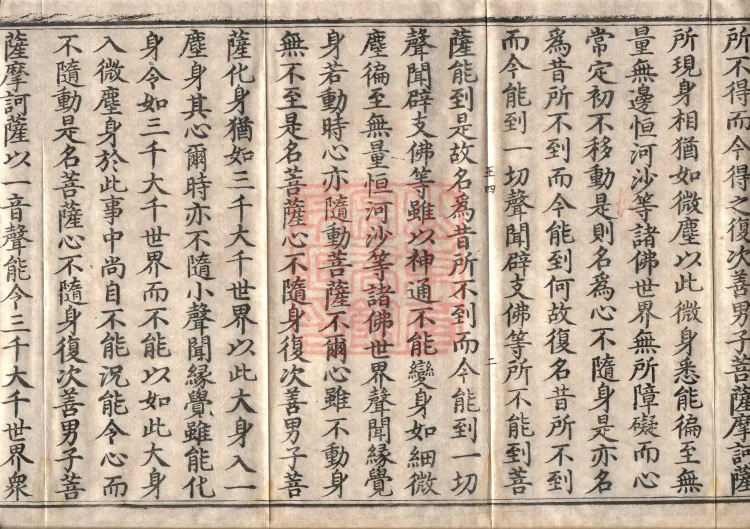 所不得而今得之復次善男子菩薩摩訶薩
所現身相猶如微塵以此微身悉能徧至無
量無邊恒河沙等諸佛世界無所障礙而心
常定初不移動是則名為心不隨身是亦名
為昔所不到而今能到何故復名昔所不到
而今能到一切聲聞辟支佛等所不能到菩
薩能到是故名為昔所不到而今能到一切
聲聞辟支佛等雖以神通不能變身如細微
塵徧至無量恒河沙等諸佛世界聲聞緣覺
身若動時心亦隨動菩薩不爾心雖不動身
無不至是名菩薩心不隨身復次善男子菩
薩化身猶如三千大千世界以此大身入一
塵身其心爾時亦不隨小聲聞緣覺雖能化
身令如三千大千世界而不能以如此大身
入微塵身於此事中尚自不能況能令心而
不隨動是名菩薩心不隨身復次善男子菩
薩摩訶薩以一音聲能令三千大千世界衆